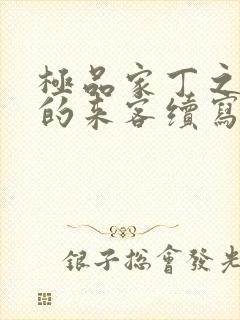 極品家丁之
的来客續寫
銀子總會發光